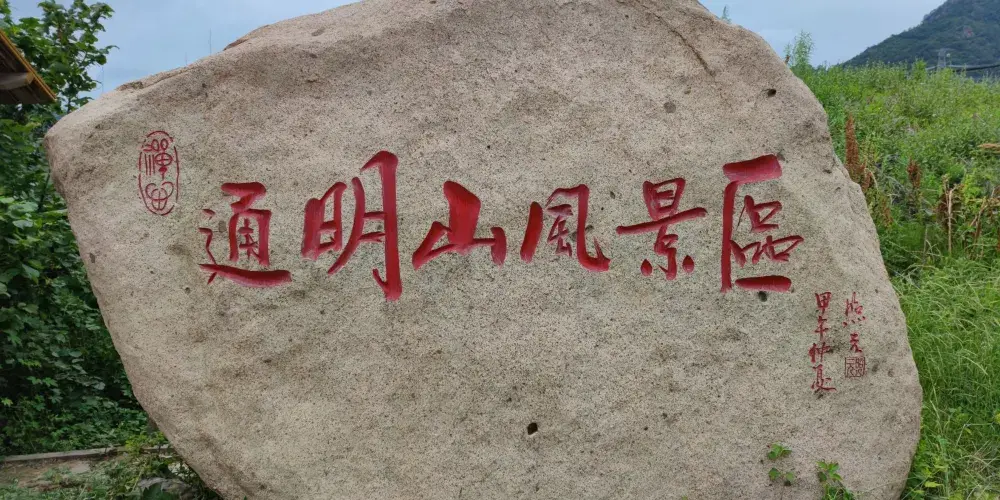 通明山風景區
甲午仲夏